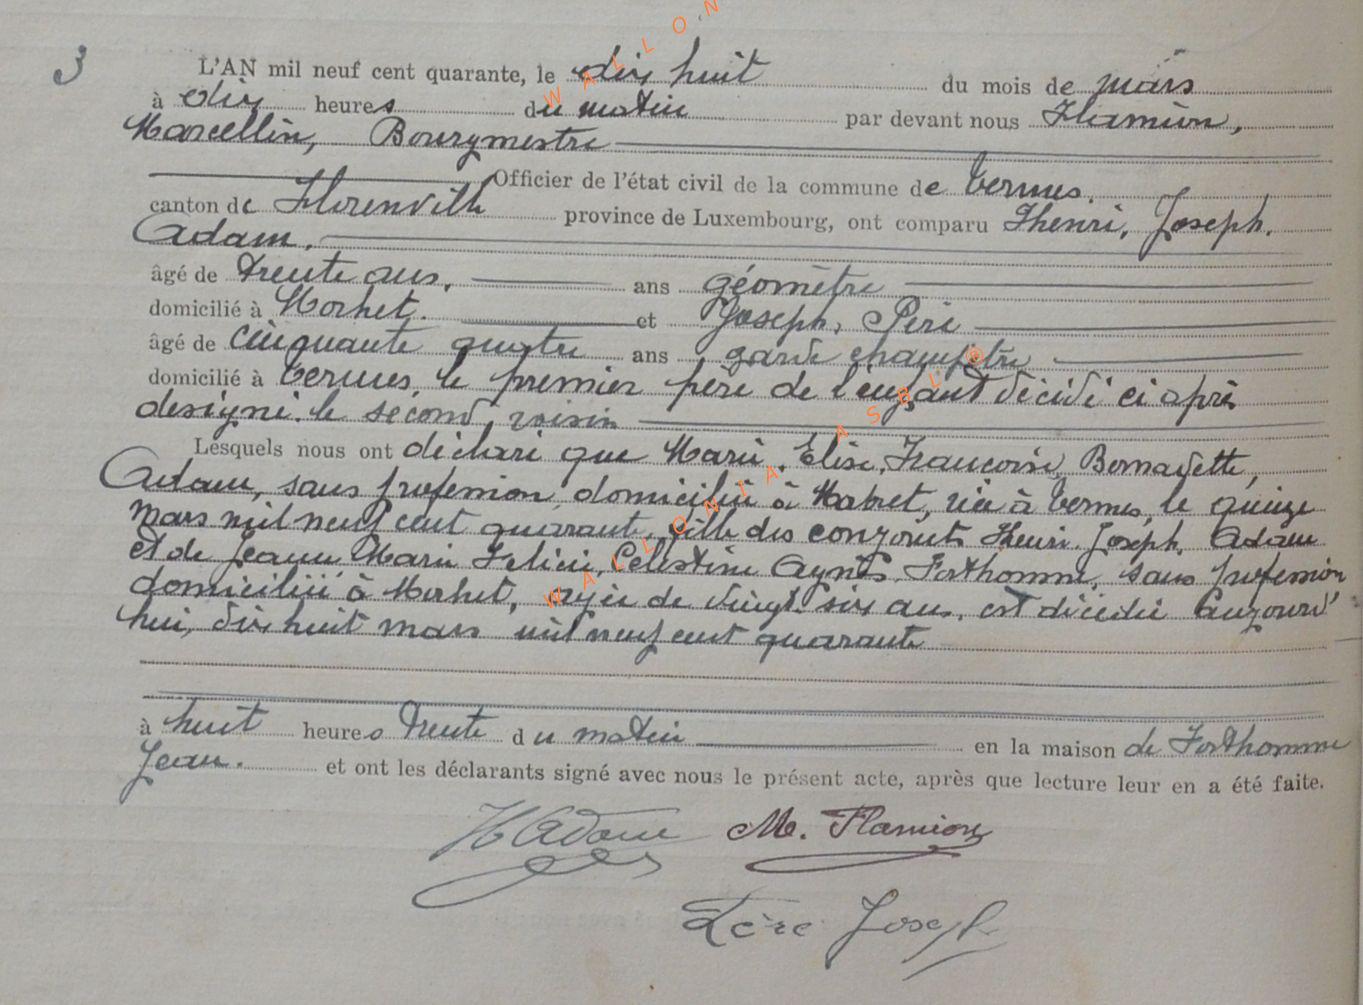 3
L'AN mil neuf cent quarante, le dix huit du mois de mars
à dix heures du matin par devant nous Flamion,
Marcellin, Bourgmestre
Officier de l'état civil de la commune de Termes.
canton de Florenville province de Luxembourg, ont comparu Henri, Joseph.
Adam.
âgé de trente ans. ans géomètre
domicilié à Morhet. et Joseph, Père
âgé de cinquante quatre ans garde champêtre
domicilié à Termes le premier père de l'enfant décédé ci après
designé. le second voisin
Lesquels nous ont déclaré que Marie, Elise, Françoise, Bernadette,
Adam, sans profession domiciliée à Morhet, née à Termes, le quinze
mars mil neuf cent quarante, fille des conjoints Henri. Joseph. Adam
et de Jeanne Marie Félicie, Célestine Agnès Forthomme, sans profession
domiciliée à Morhet, âgée de vingt six ans, est décédée aujourd'
hui, dix huit mars mil neuf cent quarante
à huit heures trente du matin en la maison de Forthomme
Jean. et ont les déclarants signé avec nous le présent acte, après que lecture leur en a été faite.
H Adam M. Flamion
Père Joseph
WALLONIA ASBL ®
WALLON